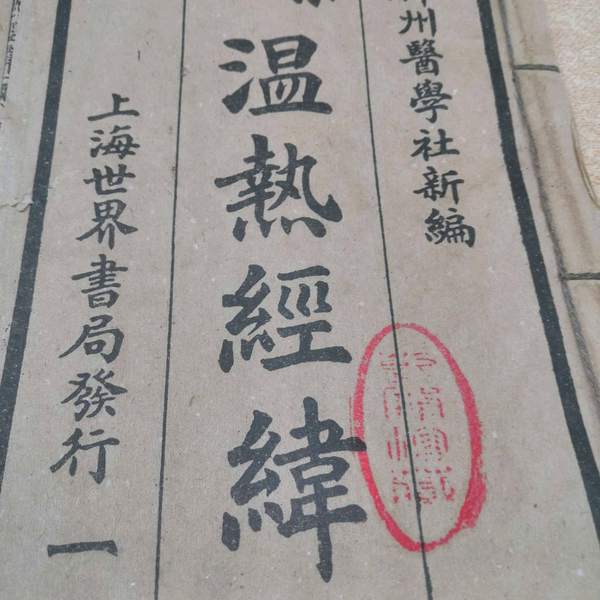 州醫學社新編
温熱經緯
上海世界書局發行
一